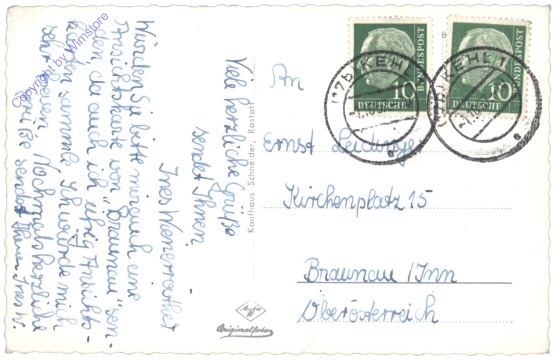 Viele herzliche Grüße
sendet Ihnen
Ines
Würden Sie bitte mir auch eine
Ansichtskarte von "Braunau" sen-
den, da auch ich eifrig Ansichts-
karten sammle. Ich würde mich
sehr freuen. Nochmals herzliche
Grüße sendet Ihnen Ines W.
Copyright by Wimstore
Kaufhaus Schneider, Rastatt
An
Ernst
Kirchenplatz 15
Braunau/Inn
Oberösterreich
10
DEUTSCHE
BUNDESPOST
10
DEUTSCHE
BUNDESPOST
(17b) KEHL
(17b) KEHL 1
Originalfoto